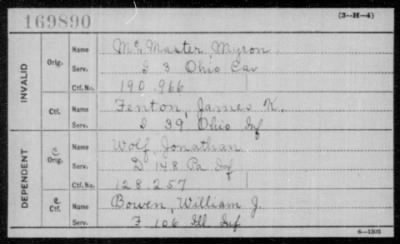 169890
(3—H—4)
INVALID
Orig.
Name McMaster, Myron.
Serv. I 3 Ohio Cav
Ctf. No. 190.966
Ctf.
Name Fenton, James K.
Serv. I 39 Ohio Inf
DEPENDENT
C Orig.
Name Wolf Jonathan
Serv. D 148 Pa Inf
Ctf. No. 128.257
C Ctf.
Name Bowen, William J.
Serv. F 106 Ill Inf
6—1205